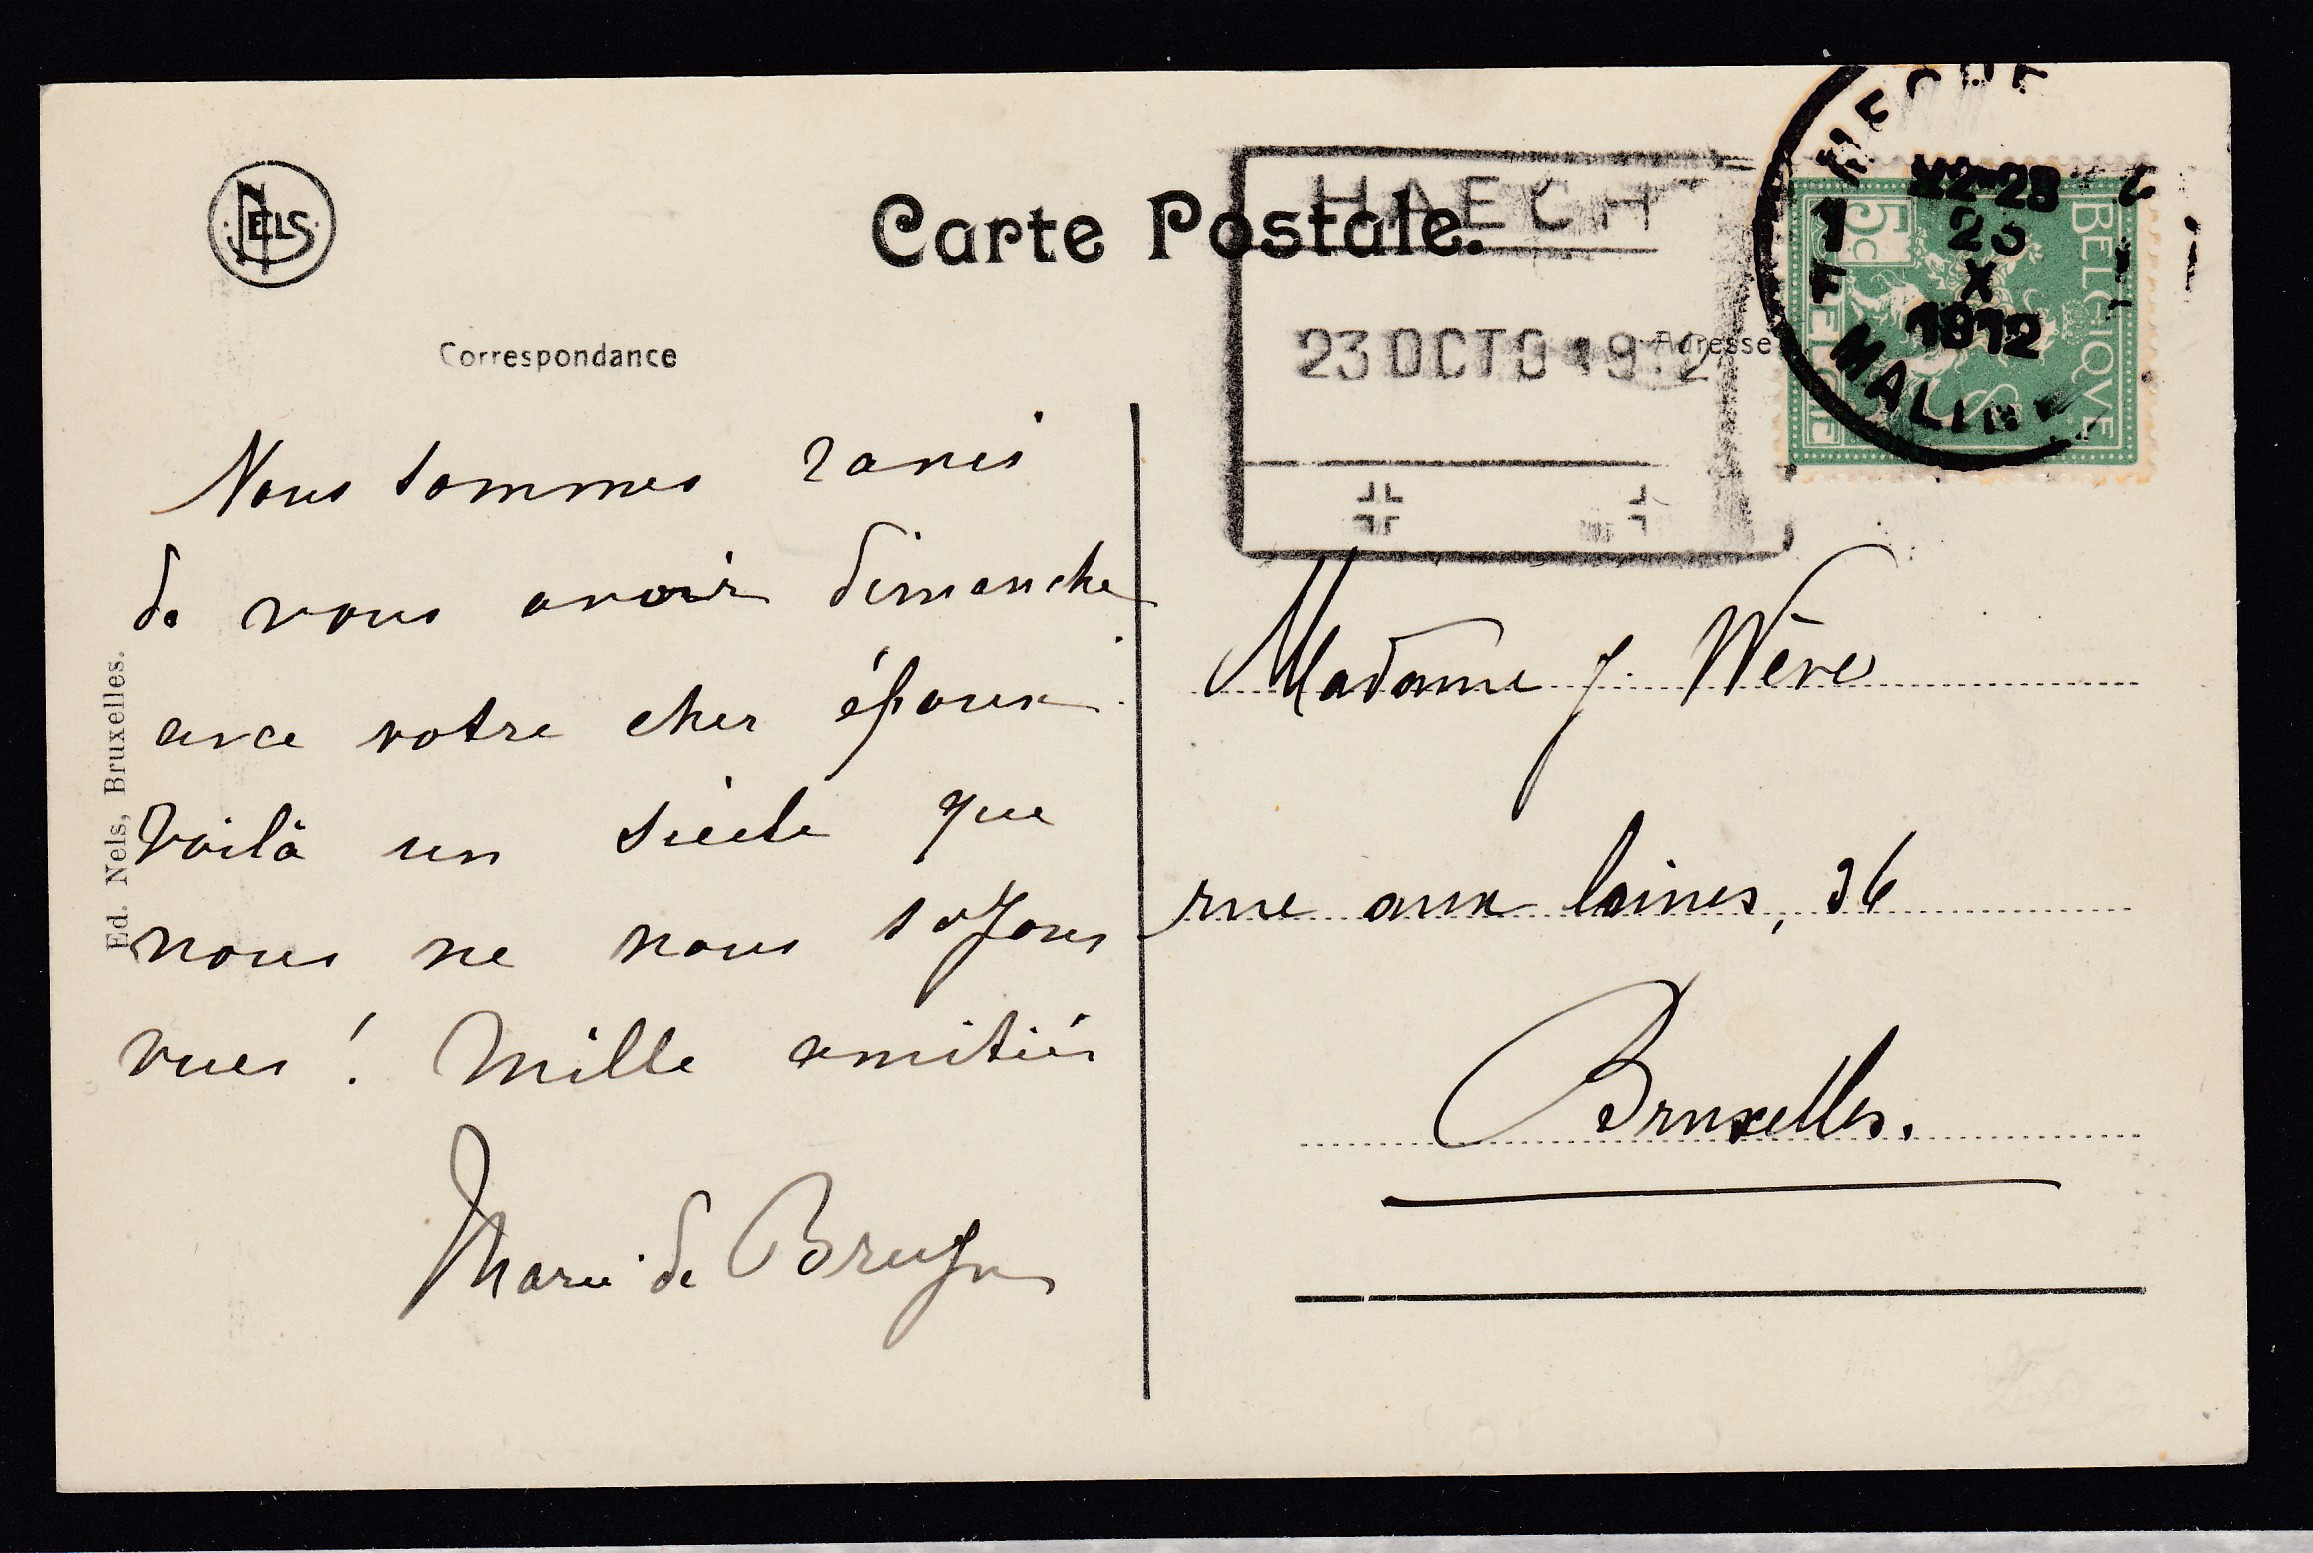 NELS
Carte Postale.
HAECH
23 OCTO 1912
Correspondance
Adresse
BELGIQVE
5c
BELGIË
22-23
23
X
1912
MALINE
Nous sommes ravis
de vous avoir dimanche
avec votre cher époux
Voilà un siècle que
nous ne nous soyons
vues ! Mille amitiés
Marie de Bruyn
Ed. Nels, Bruxelles.
Madame J. Wève
rue aux laines, 36
Bruxelles.